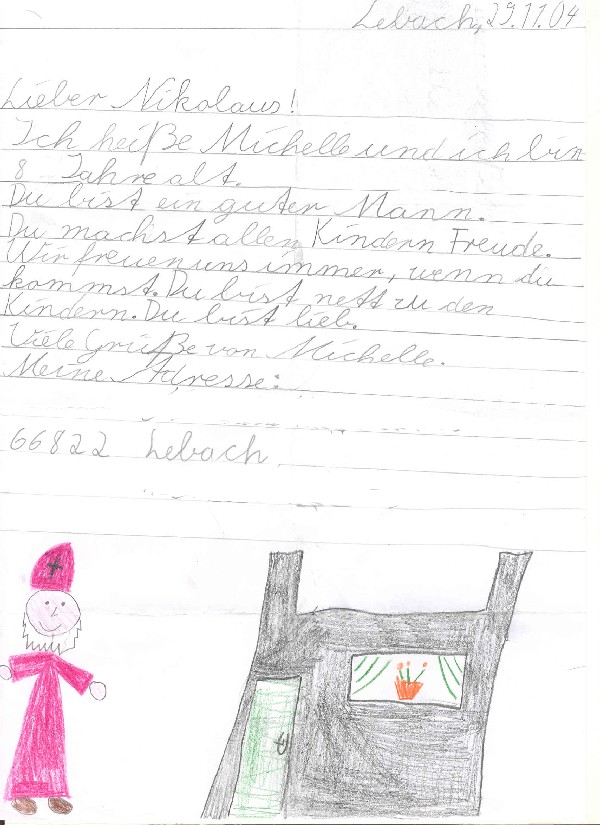 Lebach, 29.11.04
Lieber Nikolaus!
Ich heiße Michelle und ich bin
8 Jahre alt.
Du bist ein guter Mann.
Du machst allen Kindern Freude.
Wir freuen uns immer, wenn du
kommst. Du bist nett zu den
Kindern. Du bist lieb.
Viele Grüße von Michelle.
Meine Adresse:
66822 Lebach